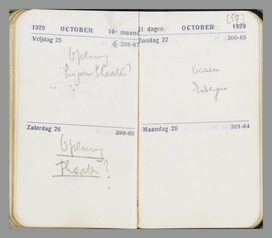 1929 OCTOBER 10e maand
Vrijdag 25 298-67
Opening
theater?
Zaterdag 26 299-66
Opening
theater!
31 dagen OCTOBER 1929
Zondag 27 300-65
Maandag 28 301-64